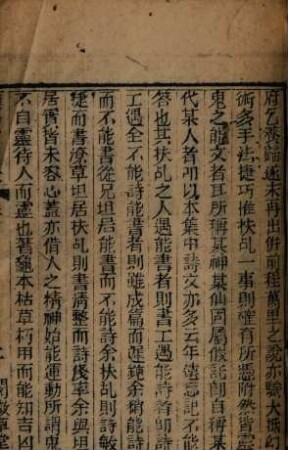 府乞養歸遂未再出併前程萬里之說亦驗大抵幻
術多手法捷巧惟扶乩一事則確有所憑附然皆靈
鬼之能文者耳所稱某神某仙固屬假託即自稱某
代某人者叩以本集中詩文亦多云年遠忘記不能
答也其扶乩之人遇能書者則書工遇能詩者則詩
工遇全不能詩能書者則雖成篇而遲鈍余稍能詩
而不能書從兄坦居能書而不能詩余扶乩則詩敏
捷而書潦草坦居扶乩則書清整而詩淺率余與坦
居實皆未容心蓋亦借人之精神始能運動所謂鬼
不自靈待人而靈也蓍龜本枯草朽甲而能知吉凶
閱微草堂